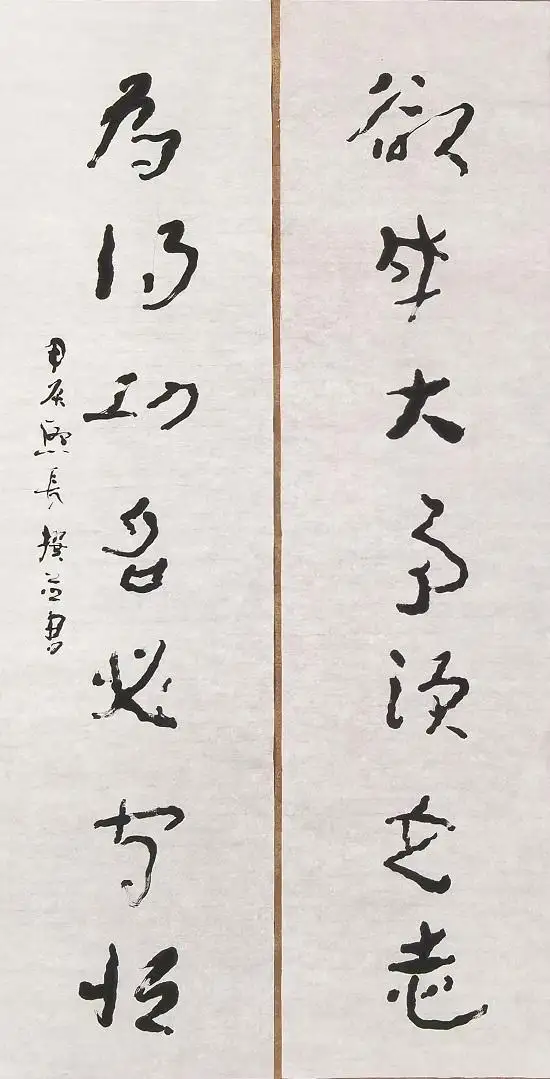 欲成大事須立志
為得功名必守恒
甲辰長撰並書